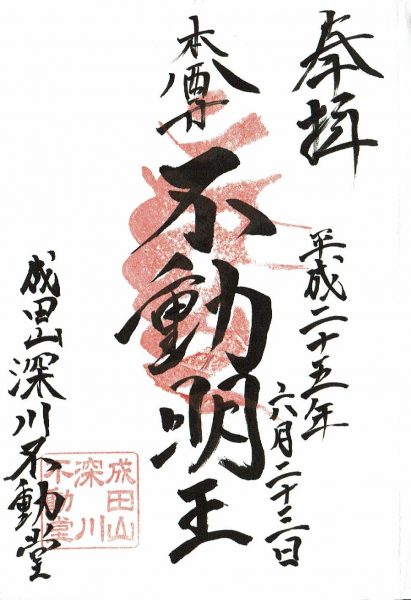 奉拝
平成二十五年
六月二十三日
本尊
不動明王
成田山深川不動堂
成田山
深川
不動堂